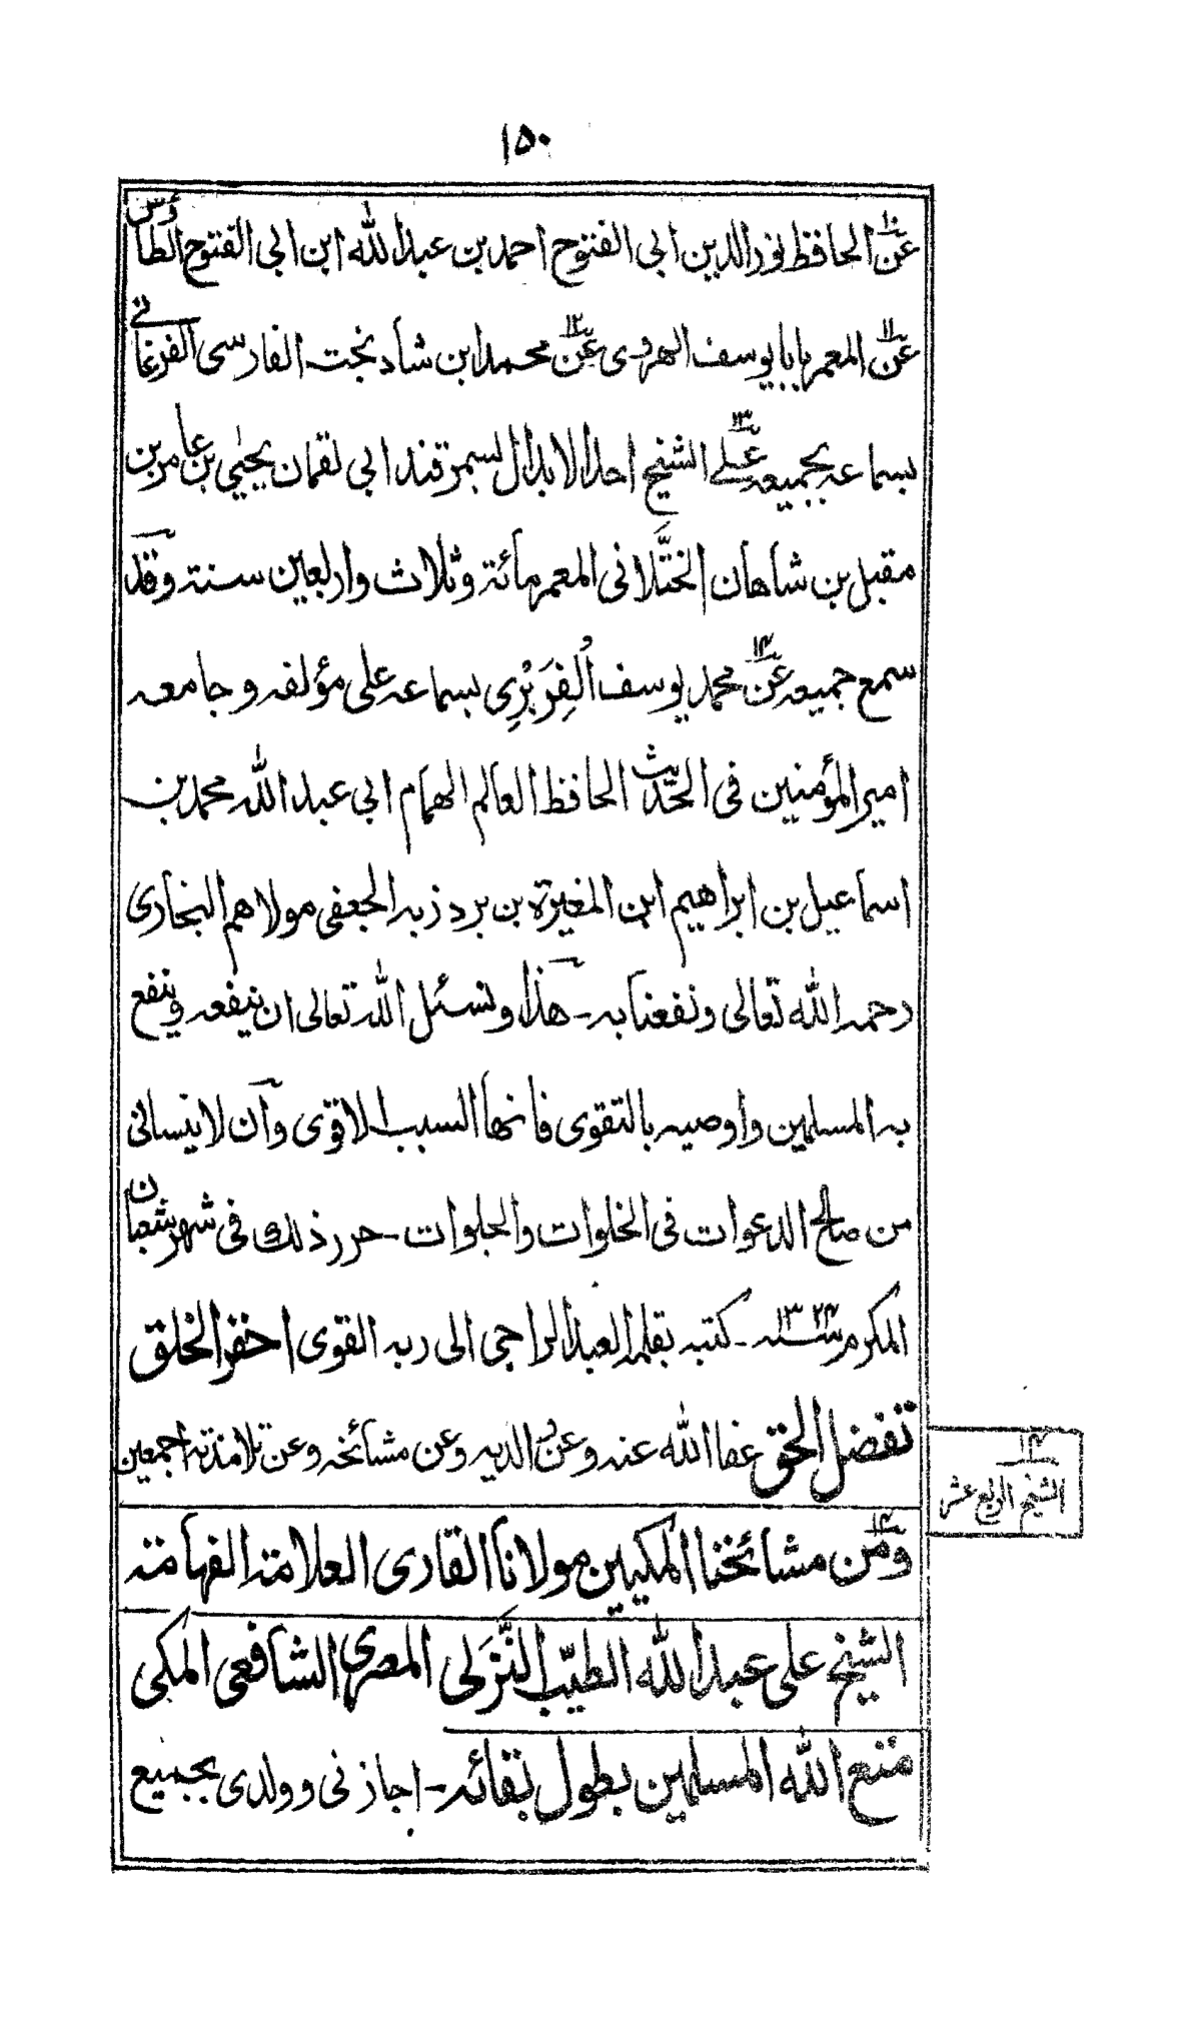 ۱۵۰
عن۱۰ الحافظ نور الدين ابی الفتوح احمد بن عبد الله ابن ابی الفتوح الطاؤسی
عن۱۱ المعمر بابا يوسف الهروی عن۱۲ محمد ابن شاد بخت الفارسی الفرغانی
بسماعه بجميعه علے۱۳ الشيخ احد الابدال بسمرقند ابی لقمان يحيٰی بن عامر بن
مقبل بن شاهان الختَّلانی المعمر مائة وثلاث واربعين سنة وقد
سمع جميعه عن۱۴ محمد يوسف الُفِرَبْرِی بسماعه علی مؤلفه وجامعه
امير المؤمنين فی الحديث الحافظ العالم الهمام ابی عبد الله محمد بن
اسماعيل بن ابراهيم ابن المغيرة بن بردزبه الجعفی مولاهم البخاری
رحمه الله تعالی ونفعنا به - هذا ونسئل الله تعالی ان ينفعه وينفع
به المسلمين واوصيه بالتقوی فانها السبب الاقوی وآن لا ينسانی
من صالح الدعوات فی الخلوات والجلوات - حرر ذلك فی شهر شعبان
المكرم سنه ۱۳۲۴ - كتبه بقلم العبد الراجی الی ربه القوی احقر الخلق
تفضل الحق عفا الله عنه وعن والديه وعن مشائخه وعن تلامذته اجمعين
۱۴
الشيخ الرابع عشر
ومن۱۴ مشائخنا المكيين مولانا القاری العلامة الفهامة
الشيخ علی عبد الله الطيّب النَّزَلی المصری الشافعی المكی
متع الله المسلمين بطول بقائه - اجازنی وولدی بجميع